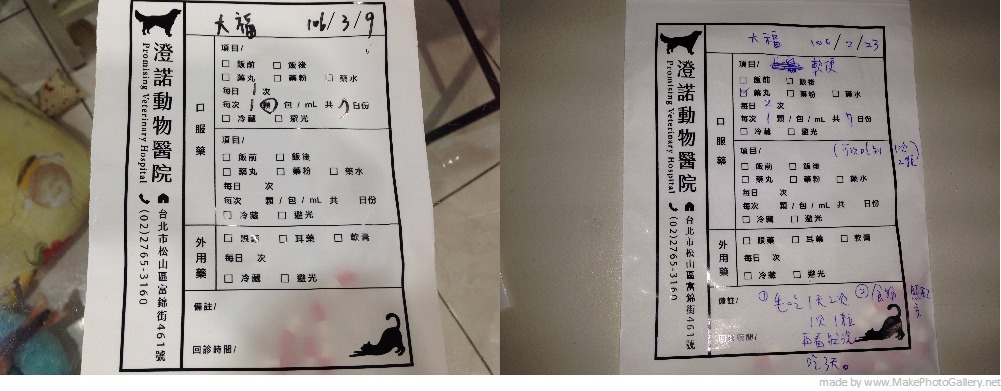 大福 106/3/9
澄諾動物醫院
Promising Veterinary Hospital
台北市松山區富錦街461號
(02)2765-3160
口服藥
項目/
飯前 飯後
藥丸 藥粉 藥水
每日 1 次
每次 1 顆 包/mL 共 7 日份
冷藏 避光
項目/
飯前 飯後
藥丸 藥粉 藥水
每日 次
每次 顆/包/mL 共 日份
冷藏 避光
外用藥
眼藥 耳藥 軟膏
每日 次
冷藏 避光
備註/
回診時間/
大福 106/2/23
澄諾動物醫院
Promising Veterinary Hospital
台北市松山區富錦街461號
(02)2765-3160
口服藥
項目/ 軟便
飯前 飯後
藥丸 藥粉 藥水
每日 2 次
每次 1 顆/包/mL 共 7 日份
冷藏 避光
項目/
飯前 飯後
藥丸 藥粉 藥水
每日 次
每次 顆/包/mL 共 日份
冷藏 避光
外用藥
眼藥 耳藥 軟膏
每日 次
冷藏 避光
備註/ ① 先吃1天2次
1次1顆
再看狀況
吃3天。
made by www.MakePhotoGallery.net